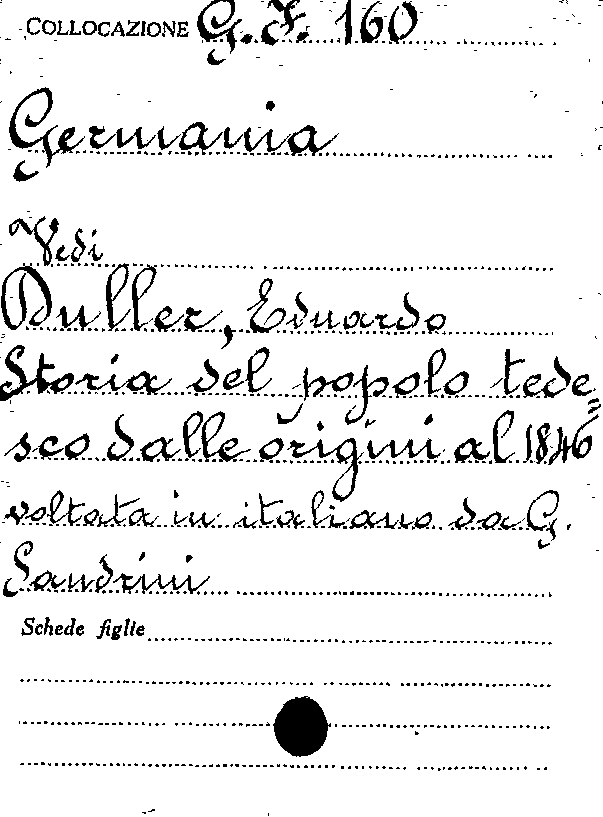 COLLOCAZIONE G. F. 160
Germania
Vedi
Duller, Eduardo
Storia del popolo tede=
sco dalle origini al 1846
voltata in italiano da G.
Sandrini
Schede figlie